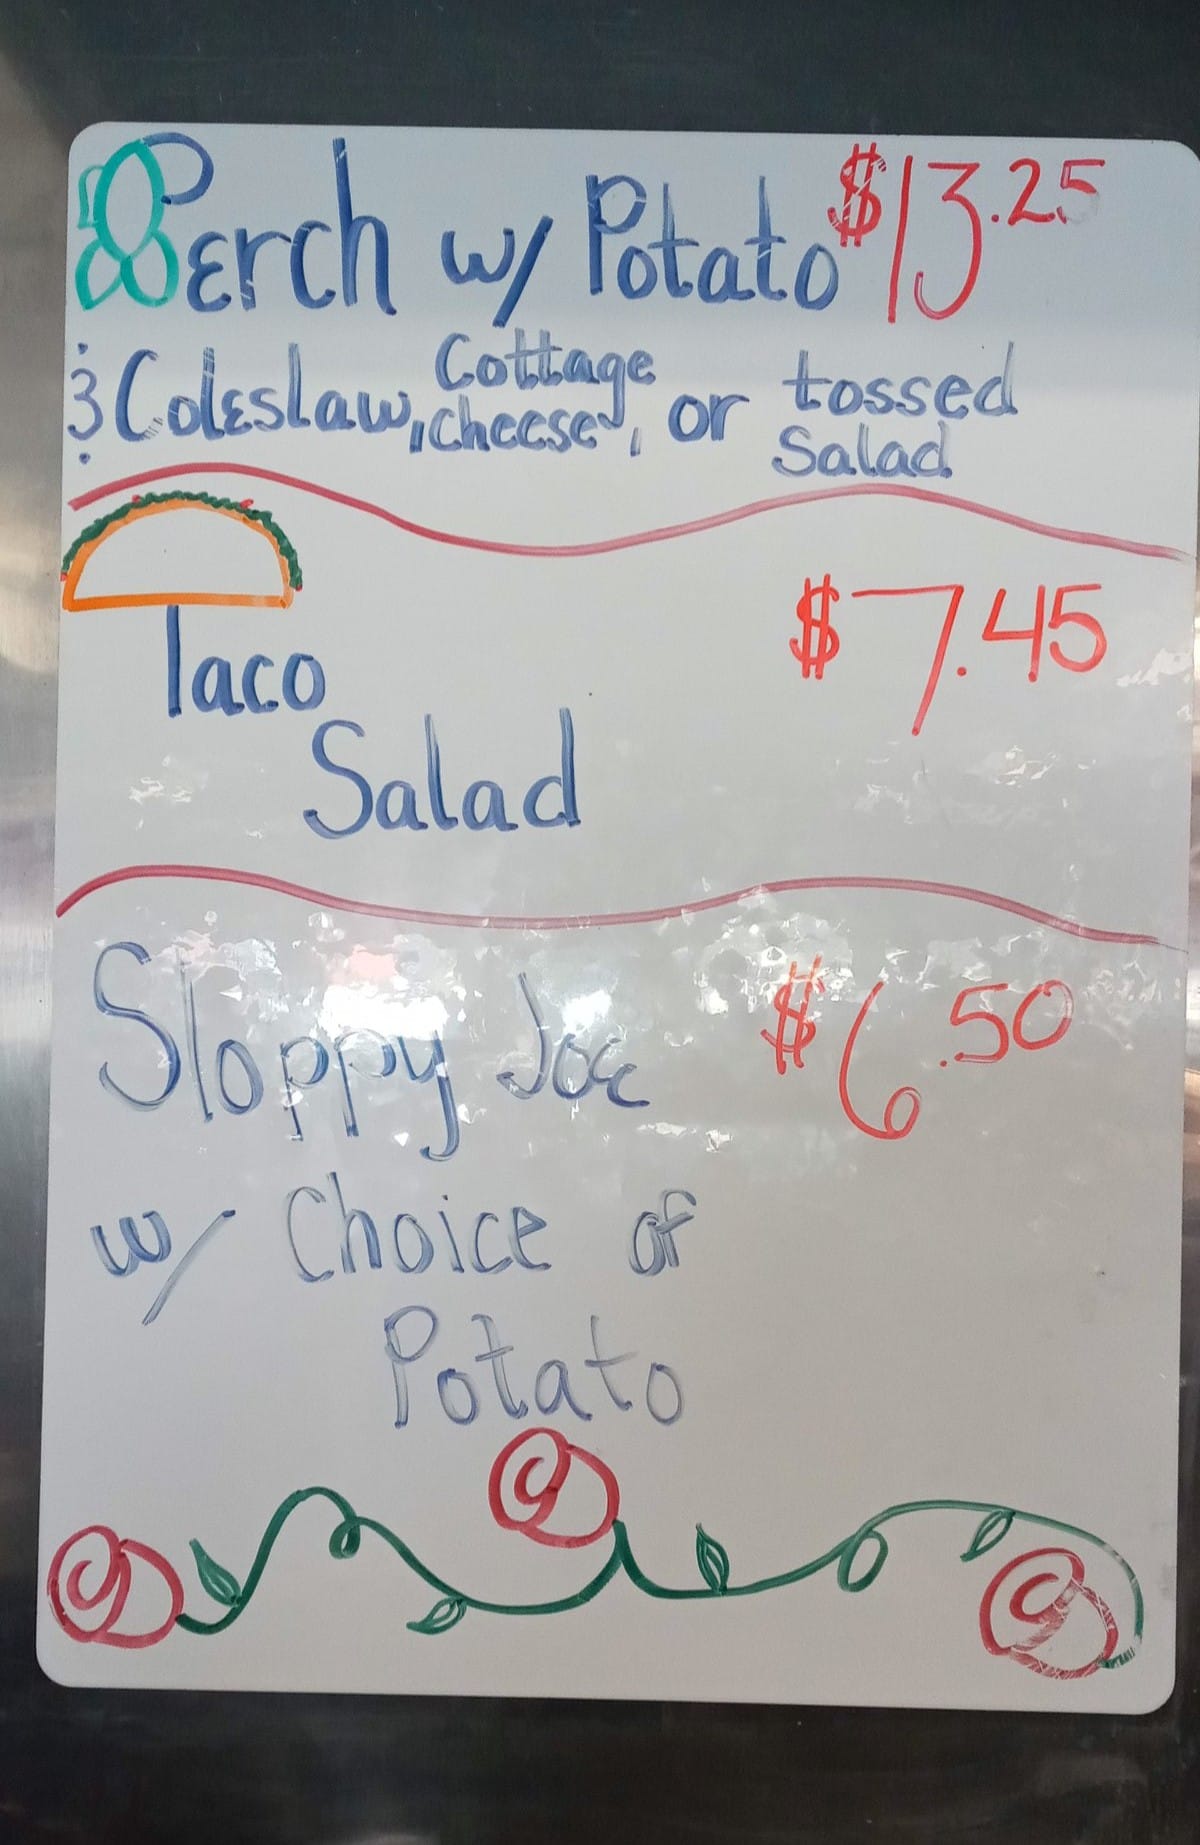 Perch w/ Potato $13.25
& Coleslaw, Cottage cheese, or tossed Salad
Taco $7.45
Salad
Sloppy Joe $6.50
w/ Choice of
Potato